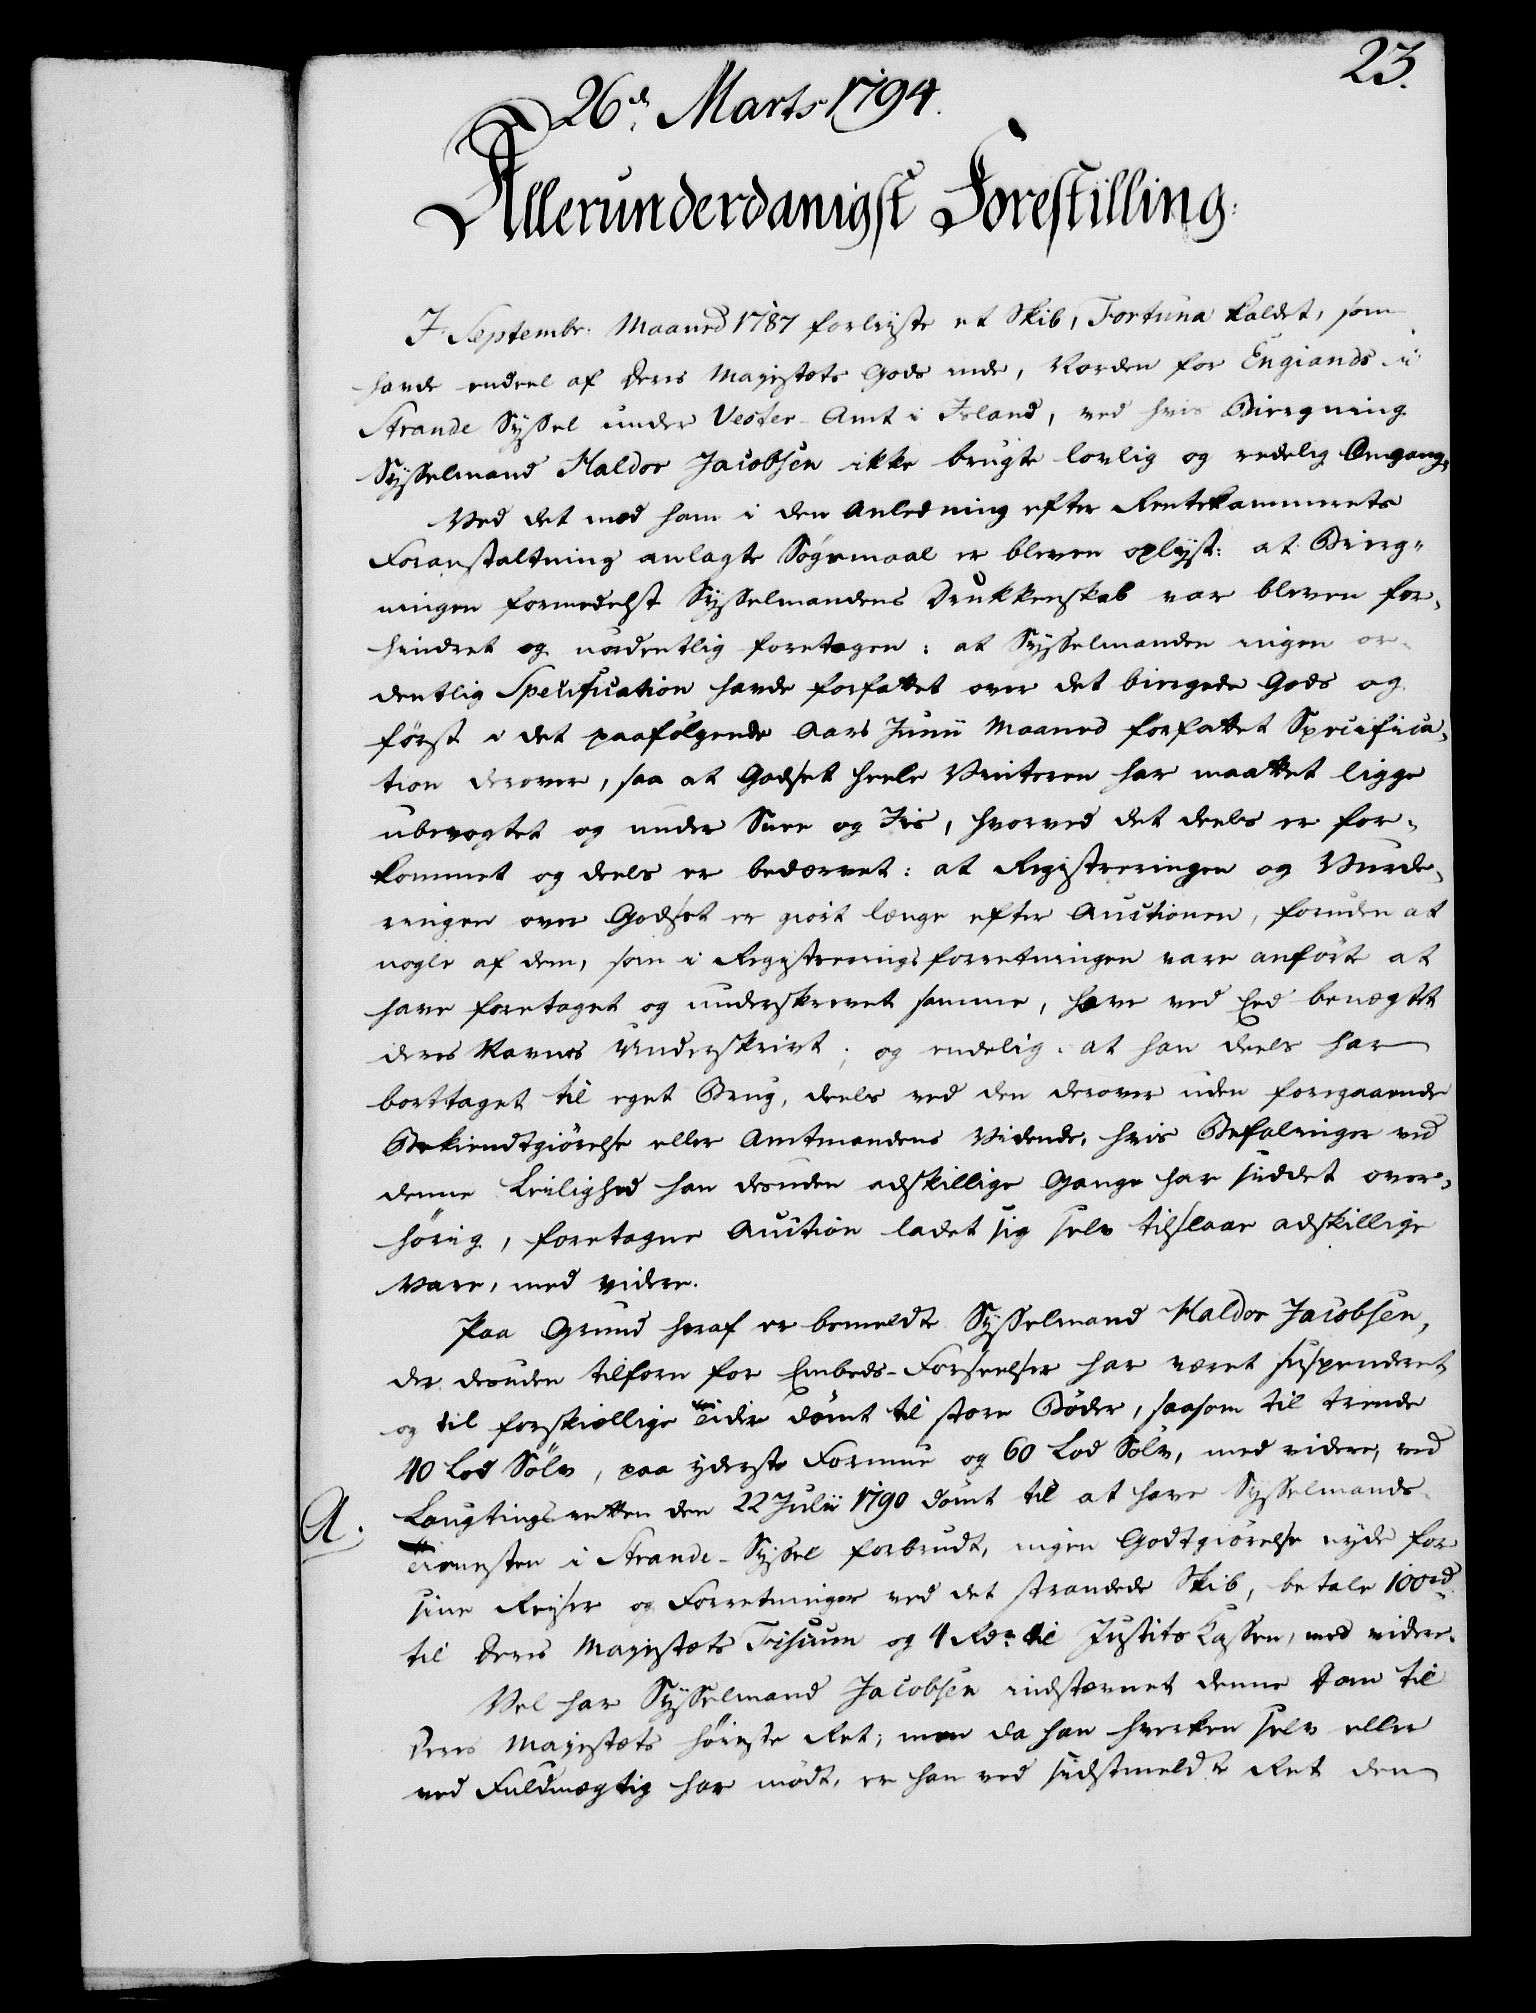 23.
26d. Marts 1794.
Allerunderdanigst Forestilling.
I Septembr. Maaned 1787 forliiste et Skib, Fortuna kaldet, som
havde endeel af Deres Majestæts Gods inde, Norden for Engiands i
Strande Syssel under Vester-Amt i Island, ved hvis Biergning
Sysselmand Haldor Jacobsen ikke brugte lovlig og redelig Omgang.
Ved det mod ham i den Anledning efter Rentekammerets
Foranstaltning anlagte Søgsmaal er bleven oplyst: at Bierg-
ningen formedelst Sysselmandens Drukkenskab var bleven for-
hindret og uordentlig foretagen: at Sysselmanden ingen or-
dentlig Specification havde forfattet over det biergede Gods og
først i det paafølgende Aars Junii Maaned forfattet Specifica-
tion derover, saa at Godset heele Vinteren har maattet ligge
ubevogtet og under Snee og Iis, hvorved det deels er for-
kommet og deels er bedærvet: at Registreringen og Vurde-
ringen over Godset er giort længe efter Auctionen, foruden at
nogle af dem, som i Registreringsforretningen vare anførte at
have foretaget og underskrevet samme, have ved Eed benægtet
deres Navnes Underskrivt; og endelig: at han deels har
borttaget til eget Brug, deels ved den derover uden foregaaende
Bekiendtgiørelse eller Amtmandens Vidende, hvis Befalinger ved
denne Leilighed han desuden adskillige Gange har siddet over-
hørig, foretagne Auction ladet sig selv tilslaae adskillige
Vare, med videre.
Paa Grund heraf er bemeldte Sysselmand Haldor Jacobsen,
der desuden tilforn for Embeds-Forseelser har været suspenderet
og til forskiællige Tider dømt til store Bøder, saasom til trende
40 Lod Sølv, paa yderste Formue og 60 Lod Sølv, med videre, ved
A.
Laugtingsretten den 22 Julii 1790 dømt til at have Sysselmands-
Tienesten i Strande-Syssel forbrudt, ingen Godtgiørelse nyde for
sine Reiser og Forretninger ved det strandede Skib, betale 100rd
til Deres Majestæts Fiscum og 4 Rdr. til Justits Kassen, med videre.
Vel har Sysselmand Jacobsen indstævnet denne Dom til
Deres Majestæts høieste Ret; men da han hverken selv eller
ved Fuldmægtig har mødt, er han ved sidstmeldte Ret den